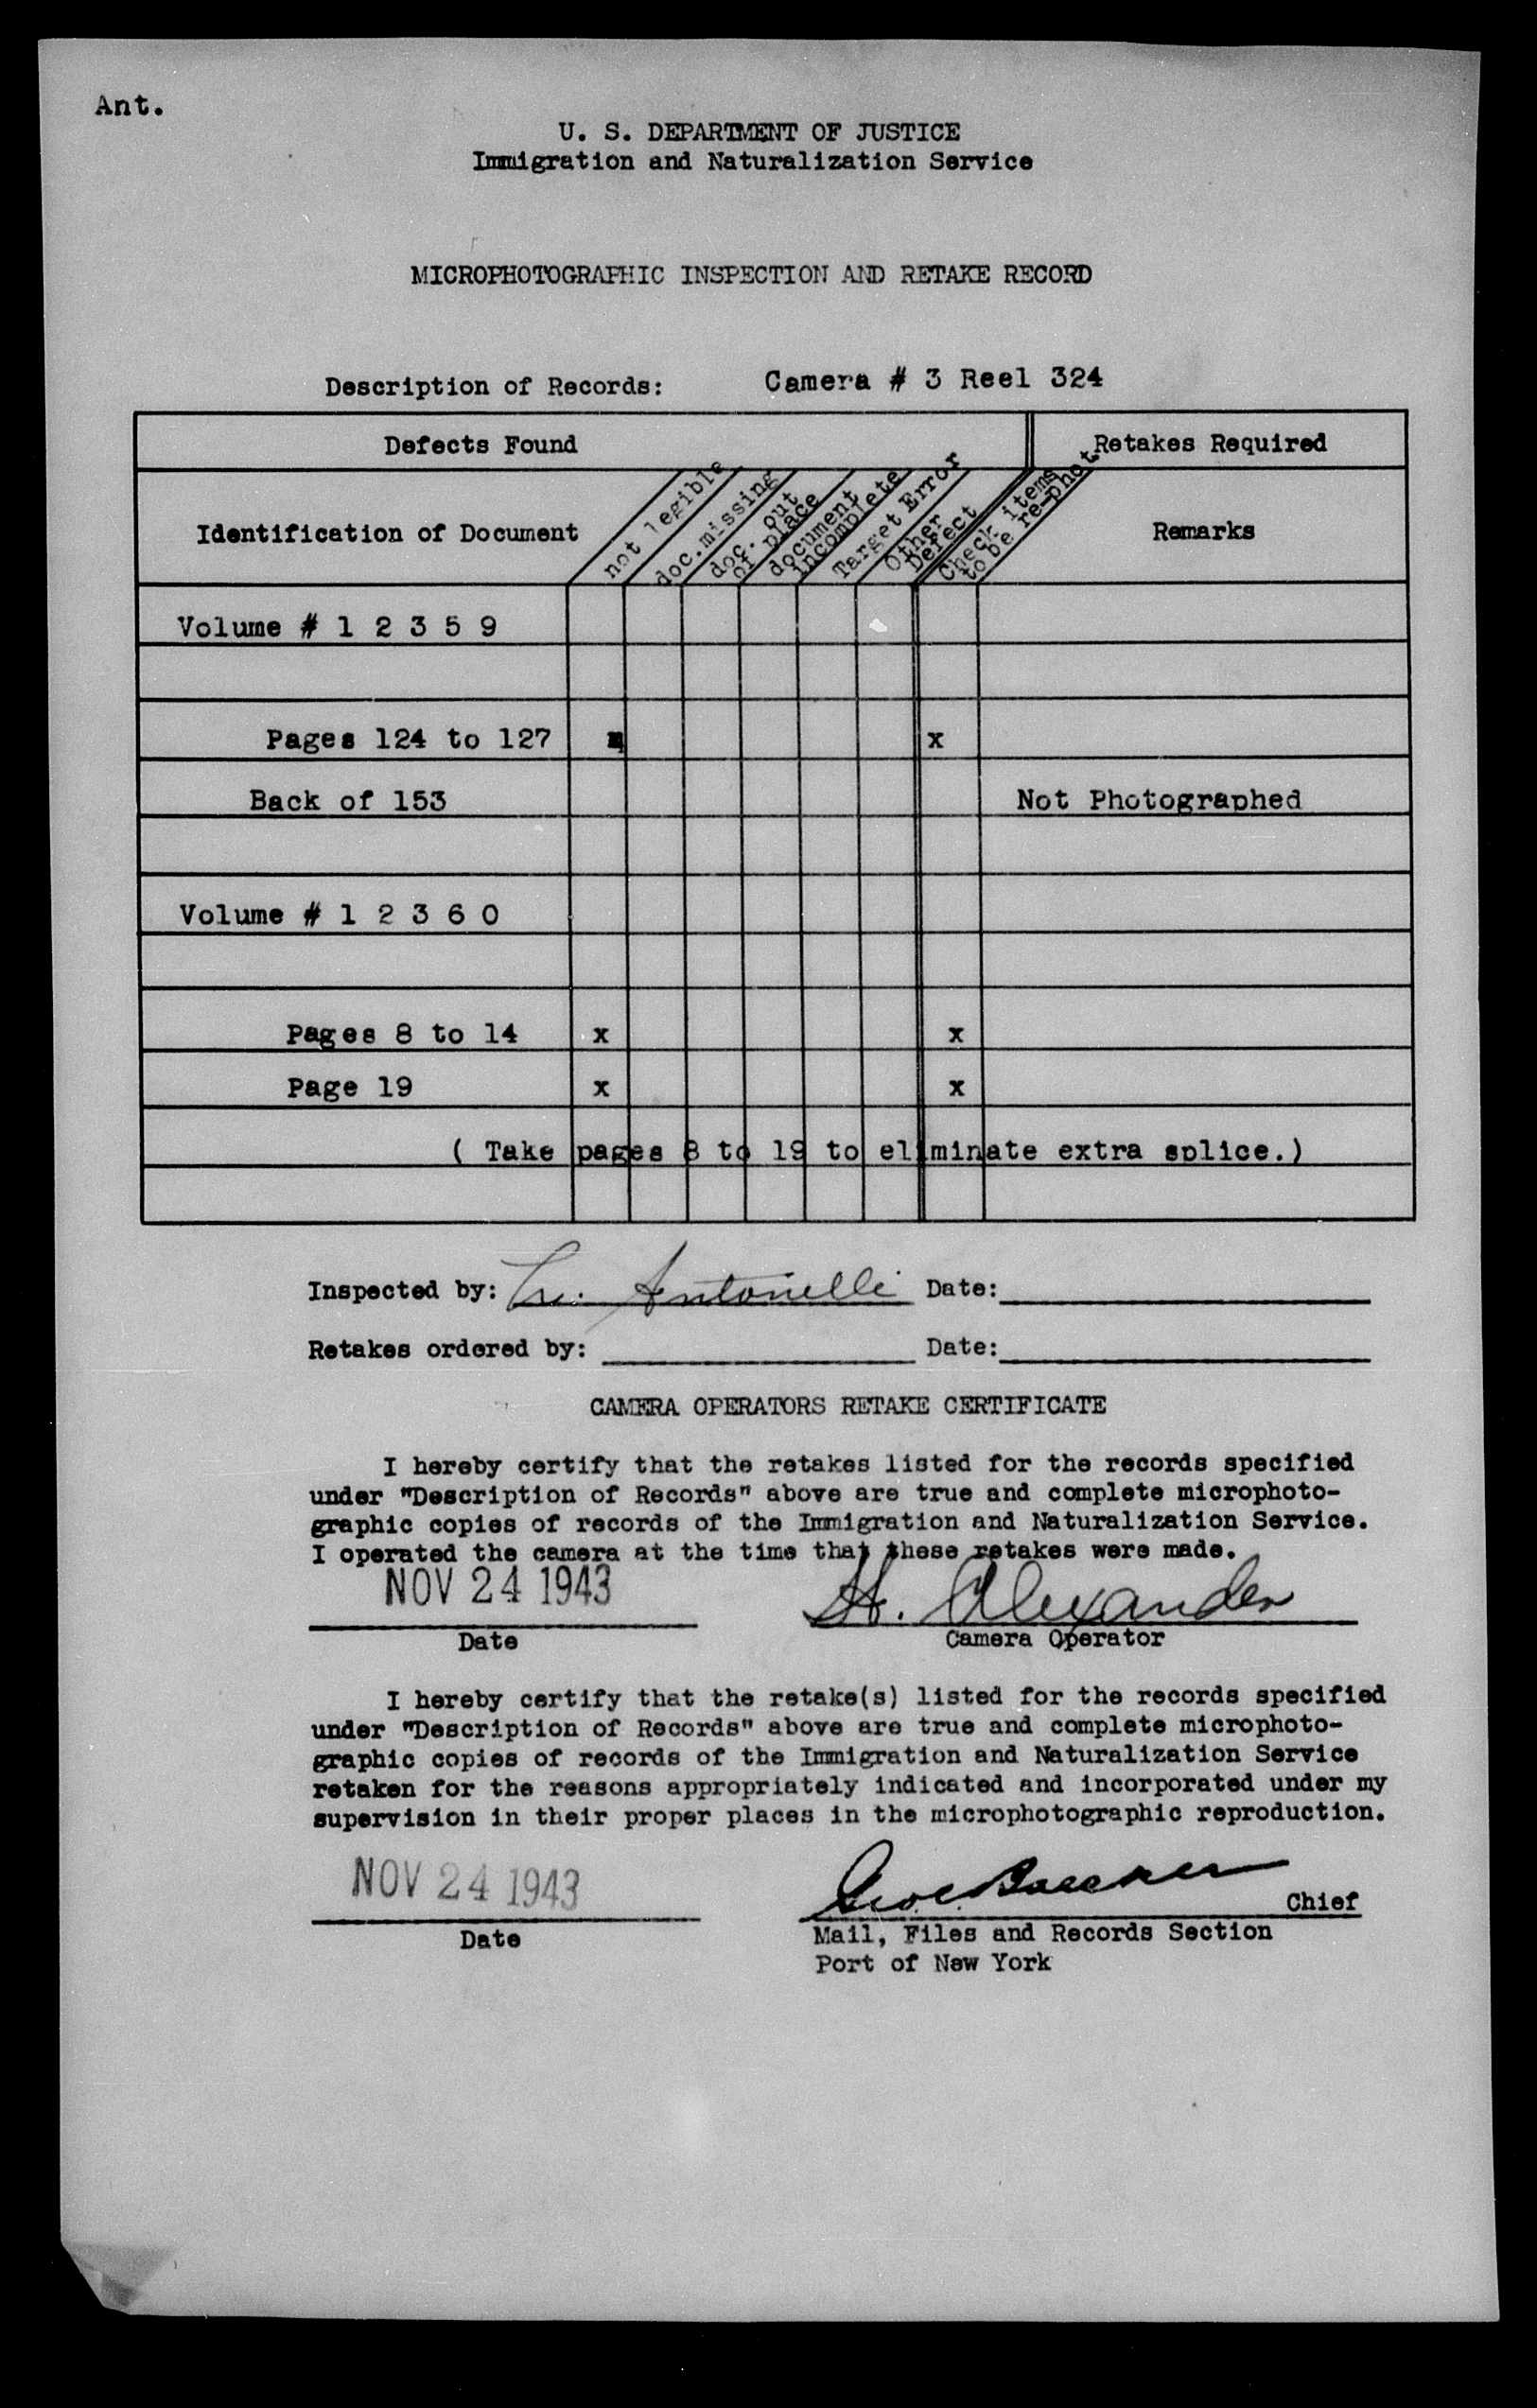 Ant.
U. S. DEPARTMENT OF JUSTICE
Immigration and Naturalization Service
MICROPHOTOGRAPHIC INSPECTION AND RETAKE RECORD
Description of Records: Camera # 3 Reel 324
Defects Found Retakes Required
Identification of Document not legible doc.missing doc. out of place document incomplete Target Error Other Defect Check items to be re-phot. Remarks
Volume # 1 2 3 5 9
Pages 124 to 127 x
Back of 153 Not Photographed
Volume # 1 2 3 6 0
Pages 8 to 14 x x
Page 19 x x
( Take pages 8 to 19 to eliminate extra splice.)
Inspected by: Antonelli Date:
Retakes ordered by: Date:
CAMERA OPERATORS RETAKE CERTIFICATE
I hereby certify that the retakes listed for the records specified
under "Description of Records" above are true and complete microphoto-
graphic copies of records of the Immigration and Naturalization Service.
I operated the camera at the time that these retakes were made.
NOV 24 1943 H. Alexander
Date Camera Operator
I hereby certify that the retake(s) listed for the records specified
under "Description of Records" above are true and complete microphoto-
graphic copies of records of the Immigration and Naturalization Service
retaken for the reasons appropriately indicated and incorporated under my
supervision in their proper places in the microphotographic reproduction.
NOV 24 1943 Chief
Date Mail, Files and Records Section
Port of New York